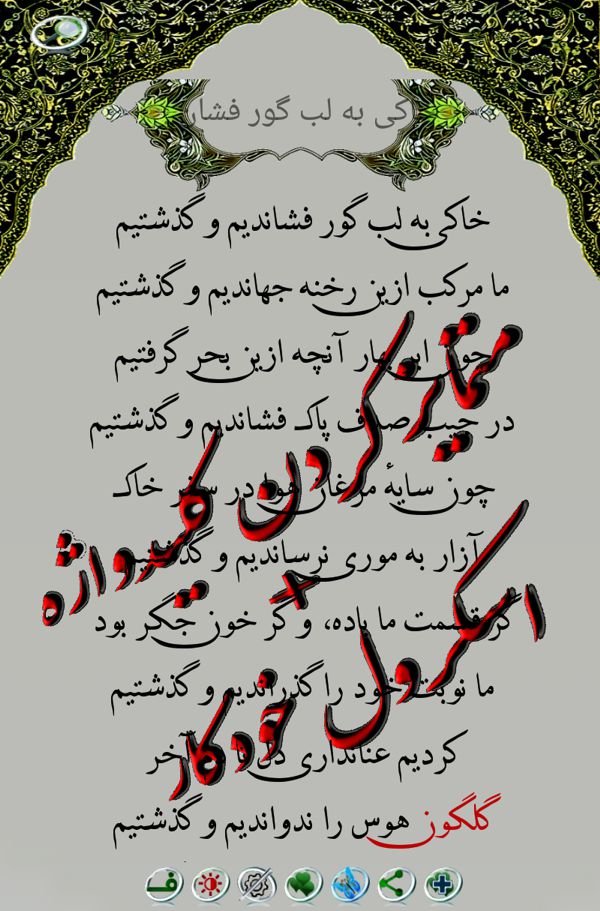 کی به لب گور فشار
خاکی به لب گور فشاندیم و گذشتیم
ما مرکب ازین رخنه جهاندیم و گذشتیم
چون ابر بهار آنچه ازین بحر گرفتیم
در جیب صدف پاک فشاندیم و گذشتیم
چون سایهٔ مرغان هوا در سفر خاک
آزار به موری نرساندیم و گذشتیم
گر قسمت ما باده، و گر خون جگر بود
ما نوبت خود را گذراندیم و گذشتیم
کردیم عنانداری دل تا آخر
گلگون هوس را ندواندیم و گذشتیم
متمایز کردن کلیدواژه
+
اسکرول خودکار
ف